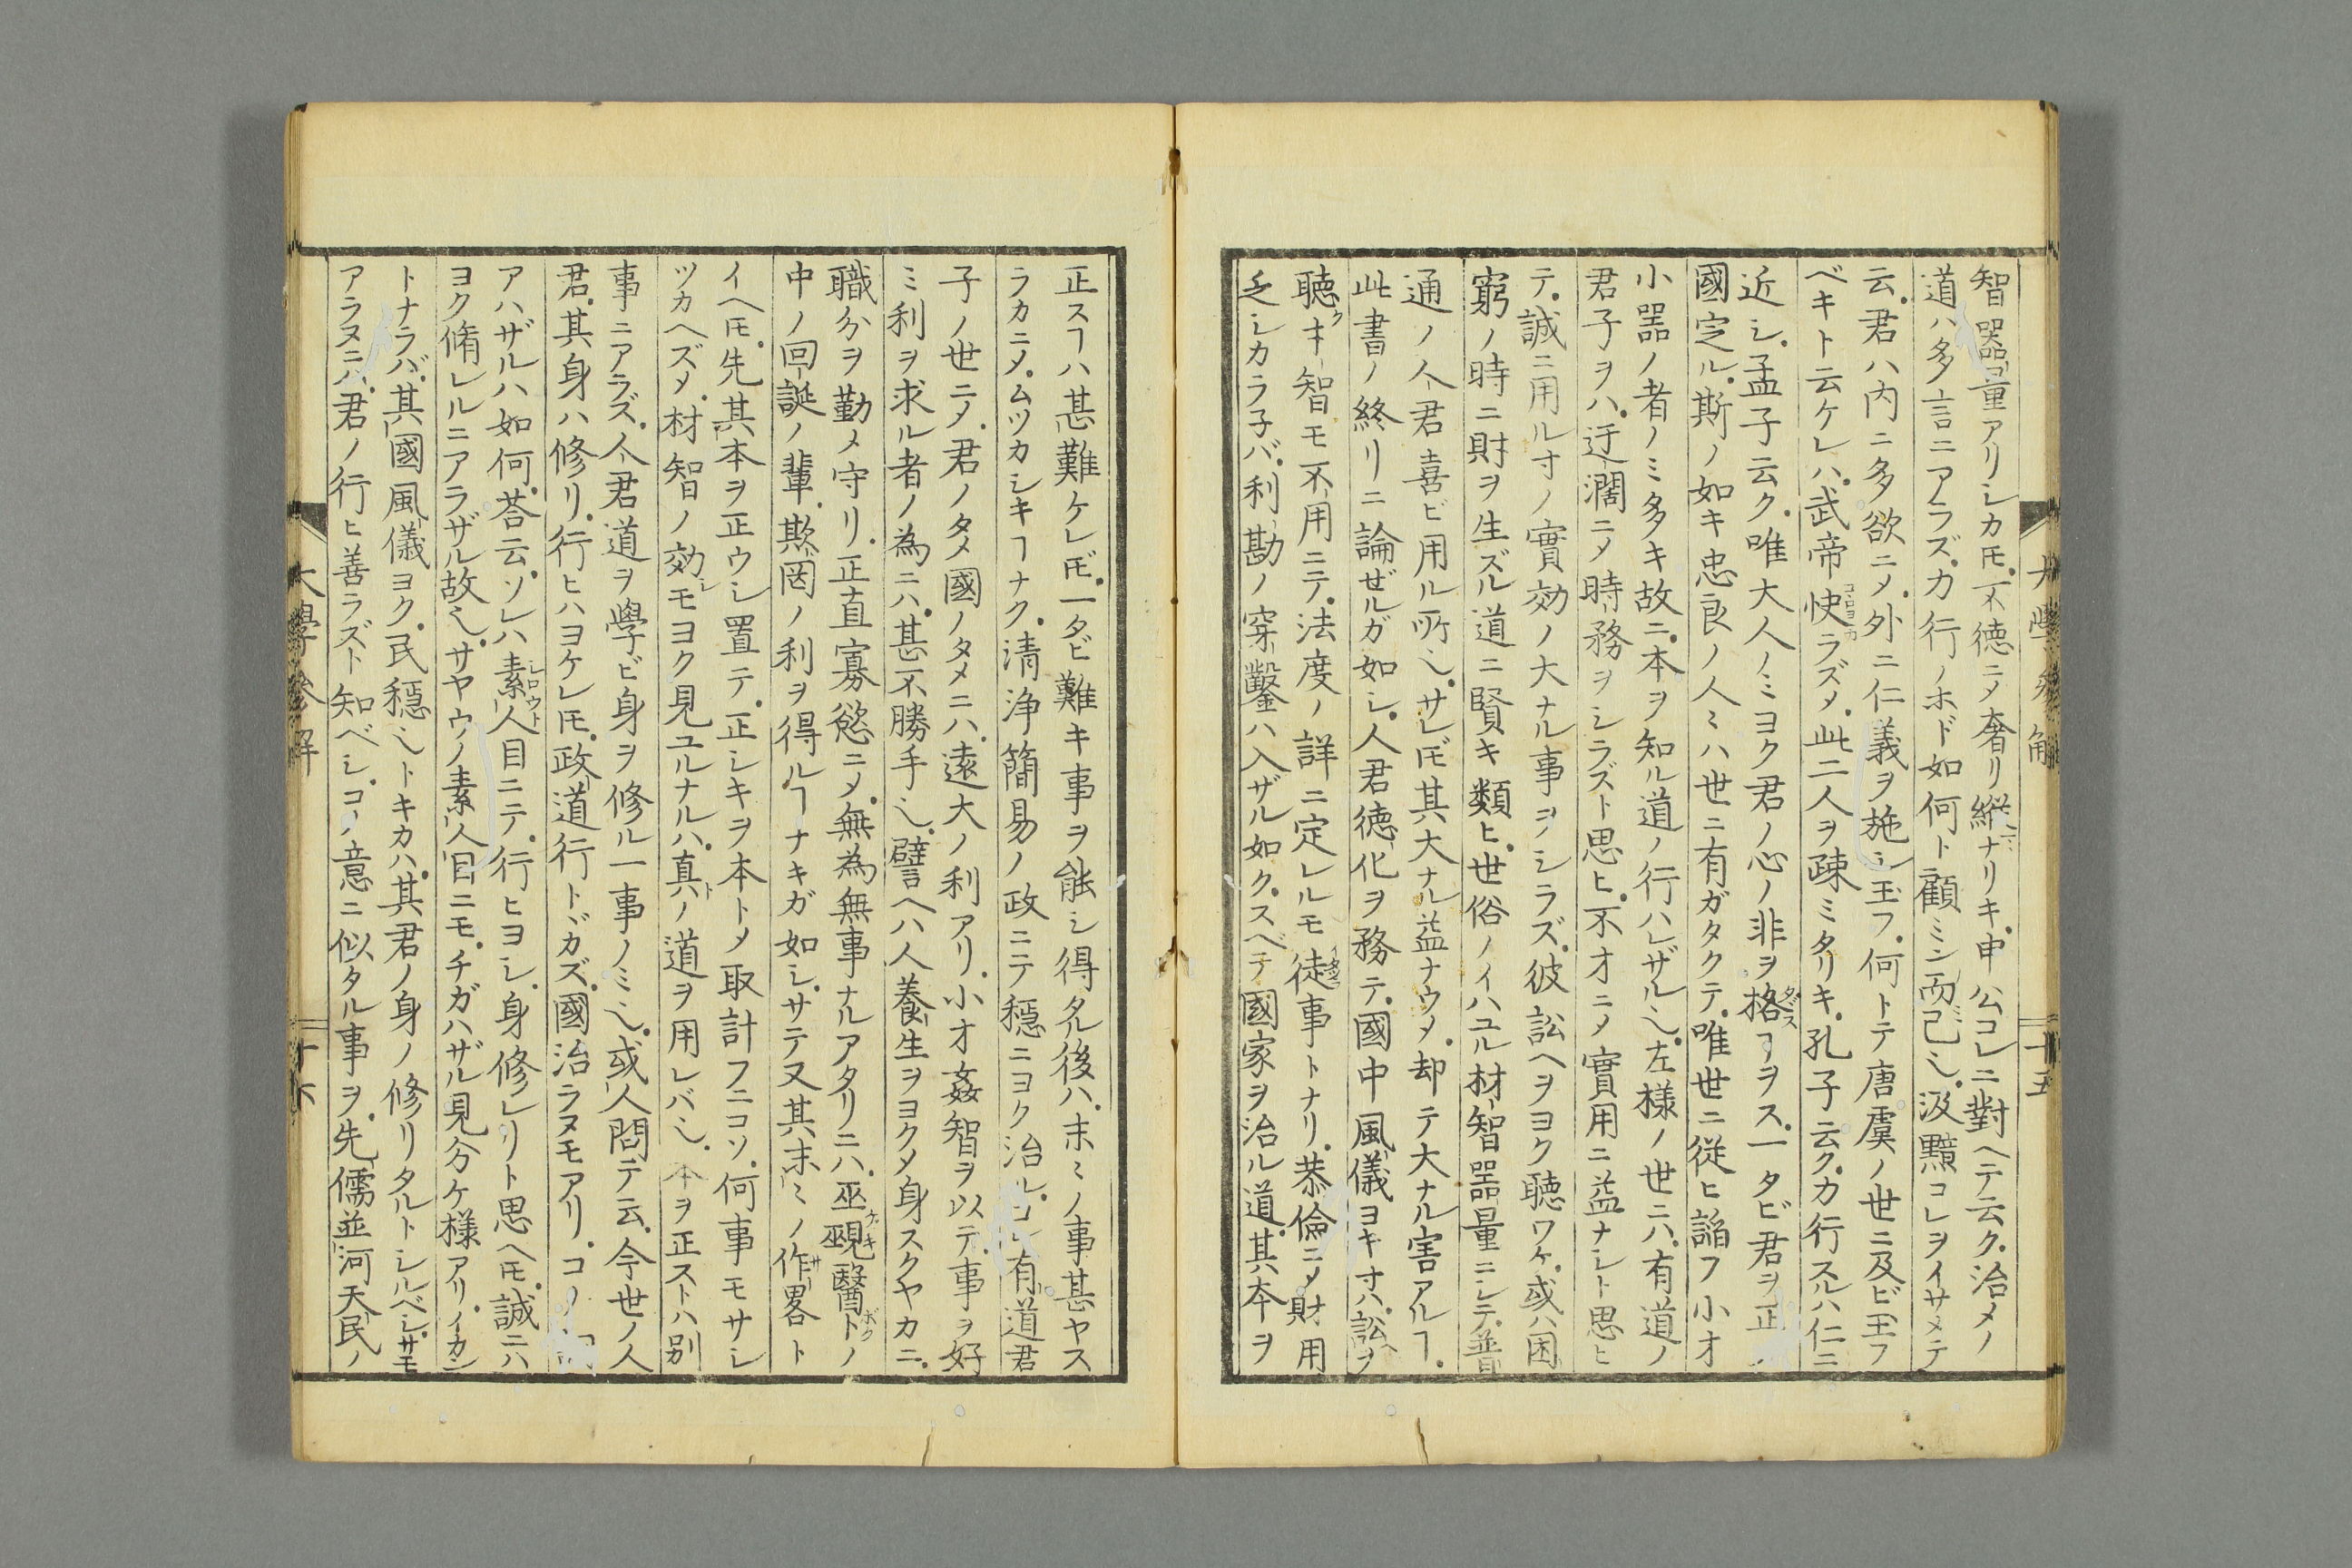 大學參解
十五
智器量アリシカ𪜈不徳ニ〆奢リ縦ナリキ申公コレニ對ヘテ云ク治メノ
道ハ多言ニアラズカ行ノホド如何ト顧ミン而已〆汲黯コレヲイサメテ
云君ハ内ニ多欲ニ〆外ニ仁義ヲ施シ玉フ何トテ唐虞ノ世ニ及ビ玉フ
ベキト云ケレハ武帝快コロヨカラズ〆此二人ヲ疎ミタリキ孔子云ク力行スルハ仁ニ
近シ孟子云ク唯大人ノミヨク君ノ心ノ非ヲ格タダスヿヲス一タビ君ヲ正
國定ル斯ノ如キ忠良ノ人ミハ世ニ有ガタクテ唯世ニ從ヒ諂フ小オ
小器ノ者ノミ多キ故ニ本ヲ知ル道ノ行ハレザル〆左様ノ世ニハ有道ノ
君子ヲハ迂濶ニ〆時務ヲシラズト思ヒ不オニ〆實用ニ益ナシト思ヒ
テ誠ニ用ル寸ノ實効ノ大ナル事ヲシラズ彼訟ヘヲヨク聴ワケ或ハ困
窮ノ時ニ財ヲ生ズル道ニ賢キ類ヒ世俗ノイハユル材智器量ニシテ普
通ノ人君喜ビ用ル所〆サレ𪜈其大ナル益ナウ〆却テ大ナル害アルヿ
此書ノ終リニ論ゼルガ如シ人君徳化ヲ務テ國中風儀ヨキ寸ハ訟ヘヲ
聴クキ智モ不用ニテ法度ノ詳ニ定レルモ徒事トナリ恭儉ニ〆財用
乏シカラ子バ利勘ノ穿鑿ハ入ザル如クスベテ國家ヲ治ル道其本ヲ
正スヿハ甚難ケレ𪜈一タビ難キ事ヲ能シ得タル後ハ末ミノ事甚ヤス
ラカニ〆ムツカシキヿナク清浄簡易ノ政ニテ穏ニヨク治ルコレ有道君
子ノ世ニ〆君ノタメ國ノタメニハ遠大ノ利アリ小オ姦智ヲ以テ事ヲ好
ミ利ヲ求ル者ノ為ニハ甚不勝手〆譬ヘハ人養生ヲヨク〆身スクヤカニ
職分ヲ勤メ守リ正直寡慾ニ〆無為無事ナルアタリニハ巫覡醫卜ノ
中ノ回誕ノ輩欺罔ノ利ヲ得ルヿナキガ如シサテ又其末ミノ作畧ト
イヘ𪜈先其本ヲ正ウシ置テ正シキヲ本ト〆取計フニコソ何事モサシ
ツカヘズ〆材智ノ効シモヨク見ユルナルハ真ノ道ヲ用レバ〆本ヲ正ストハ別
事ニアラズ人君道ヲ學ビ身ヲ修ル一事ノミ〆或人問テ云今世ノ人
君其身ハ修リ行ヒハヨケレ𪜈政道行トヾカズ國治ラヌモアリコノ
アハザルハ如何荅云ソレハ素人シロウト目ニテ行ヒヨシ身修レリト思ヘ𪜈誠ニハ
ヨク脩レルニアラザル故〆サヤウノ素人目ニモチガハザル見分ケ様アリイカン
トナラバ其國風儀ヨク民穏〆トキカハ其君ノ身ノ修リタルトシルベシサモ
アラヌニハ君ノ行ヒ善ラズト知ベシコノ意ニ似タル事ヲ先儒並河天民ノ
大學參解
十六